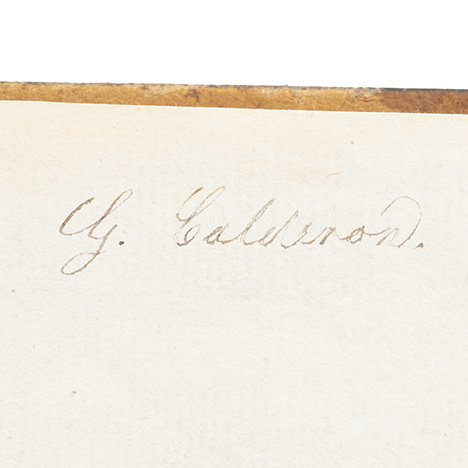 G. Calderon.